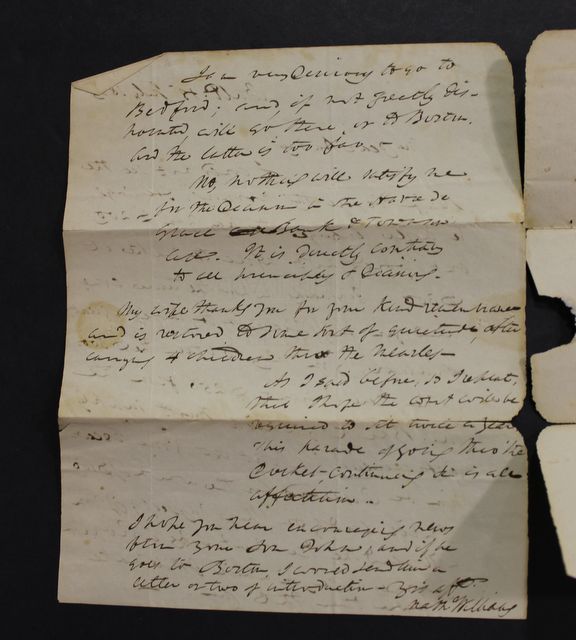 I am very desirous to go to
Bedford; and, if not greatly dis-
will go there, or to Boston.
and the latter is too far.
No, nothing will satisfy me
for the Decision in the Havre de
Grace Bank &
cases. It is directly contrary
to all principles & Decisions.
My wife thanks you for your kind
and is restored to some sort of quietude, after
carrying 4 children thro the Measles
As I said before, so I repeat,
that I hope the court will be
required to sit twice a year
This parade of going thro' the
Docket, continuing &c is all
affectation.
I hope you hear encouraging news
from your son John, and if he
goes to Boston, I would send him a
letter or two of introduction - Yrs aff
Nath Williams